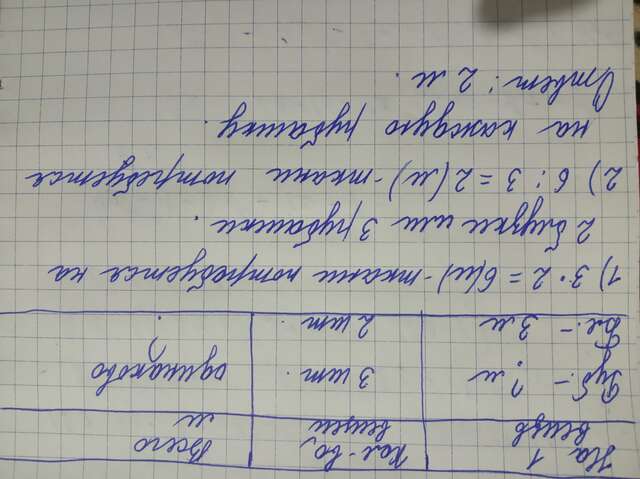 На 1 вещь Кол-во, вещей Всего м
Руб.- ? м 3 шт. одинаково
Бл.- 3 м 2 шт.
1) 3·2=6(м)-ткани потребуется на
2 блузки или 3 рубашки.
2) 6:3=2(м)-ткани потребуется
на каждую рубашку.
Ответ: 2 м.